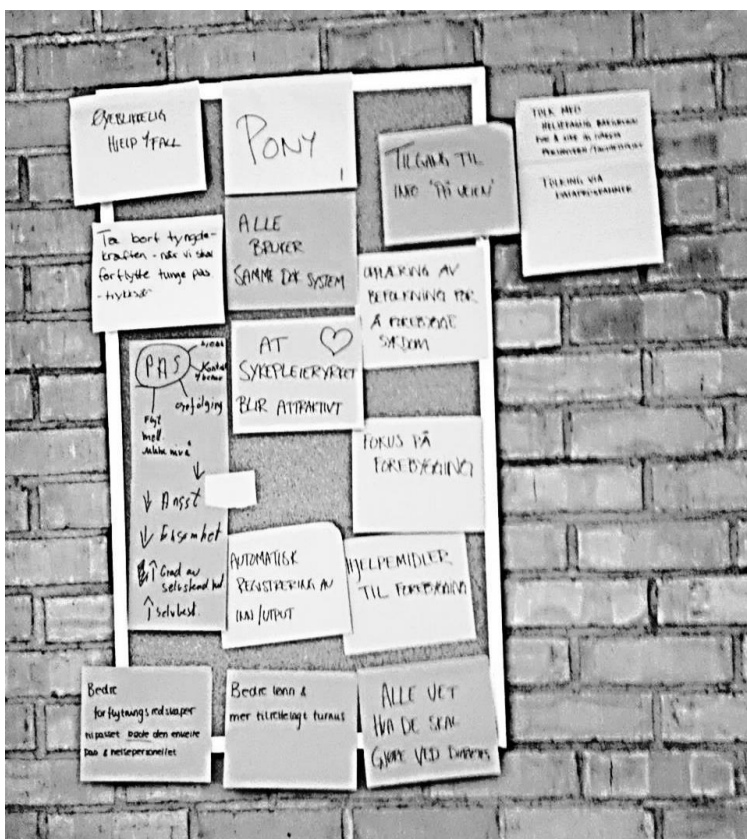 ØYEBLIKKELIG
HJELP v/FALL
PONY
TILGANG TIL
INFO "PÅ VEIEN"
TOLK MED
HELSEFAGLIG BAKGRUNN
FOR Å SIKRE
TOLKING VIA
DATAPROGRAMMER
Ta bort tyngde-
kraften - når vi skal
forflytte tunge pas.
ALLE
BRUKER
SAMME DOK SYSTEM
OPPLÆRING AV
BEFOLKNING FOR
Å FOREBYGGE
SYKDOM
PAS
oppfølging
Flyt
mell.
↓
↓ Angst
↓ Ensomhet
↑ Grad av
selvstendighet
↑ selvbest.
AT ♡
SYKEPLEIERYRKET
BLIR ATTRAKTIVT
FOKUS PÅ
FOREBYGGING
AUTOMATISK
REGISTRERING AV
INN/UTPUT
HJELPEMIDLER
TIL FOREBYGGING
Bedre
forflytningsredskaper
tilpasset både den enkelte
pas & helsepersonellet
Bedre lønn &
mer tilrettelagt turnus
ALLE VET
HVA DE SKAL
GJØRE VED DIABETES